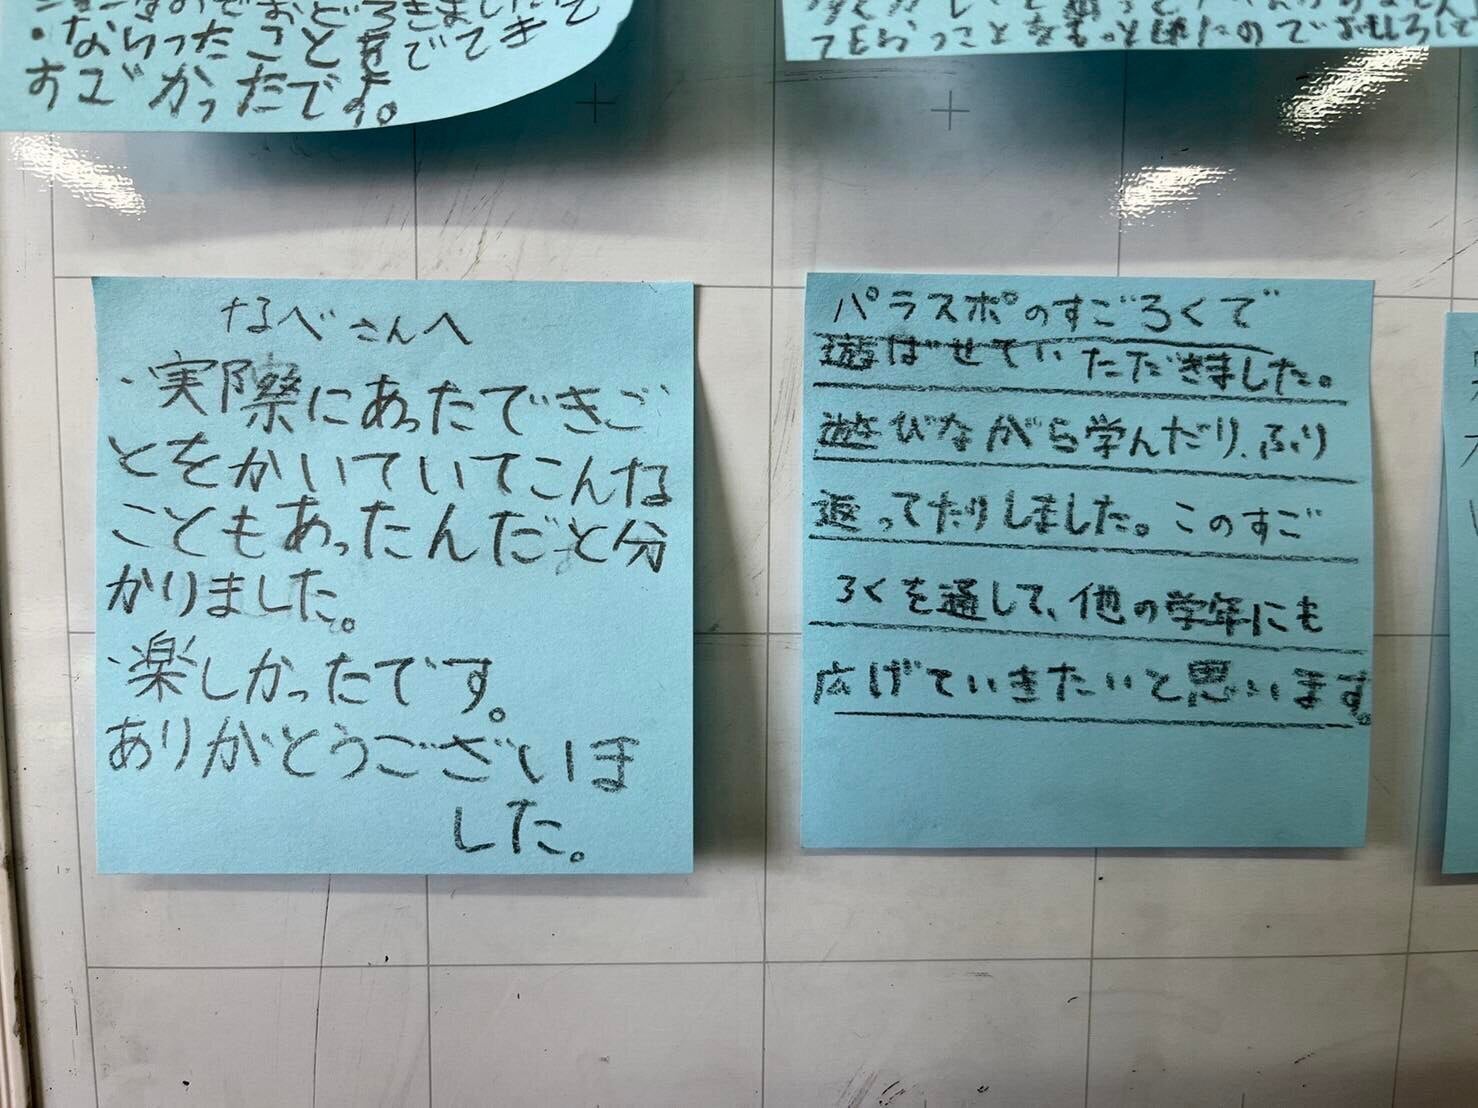 ・ならったことをでてき
すごかったです。
なべさんへ
・実際にあったできご
とをかいていてこんな
こともあったんだと分
かりました。
・楽しかったです。
ありがとうございま
した。
パラスポのすごろくで
遊ばせていただきました。
遊びながら学んだり、ふり
返ってたりしました。このすご
ろくを通して、他の学年にも
広げていきたいと思います。